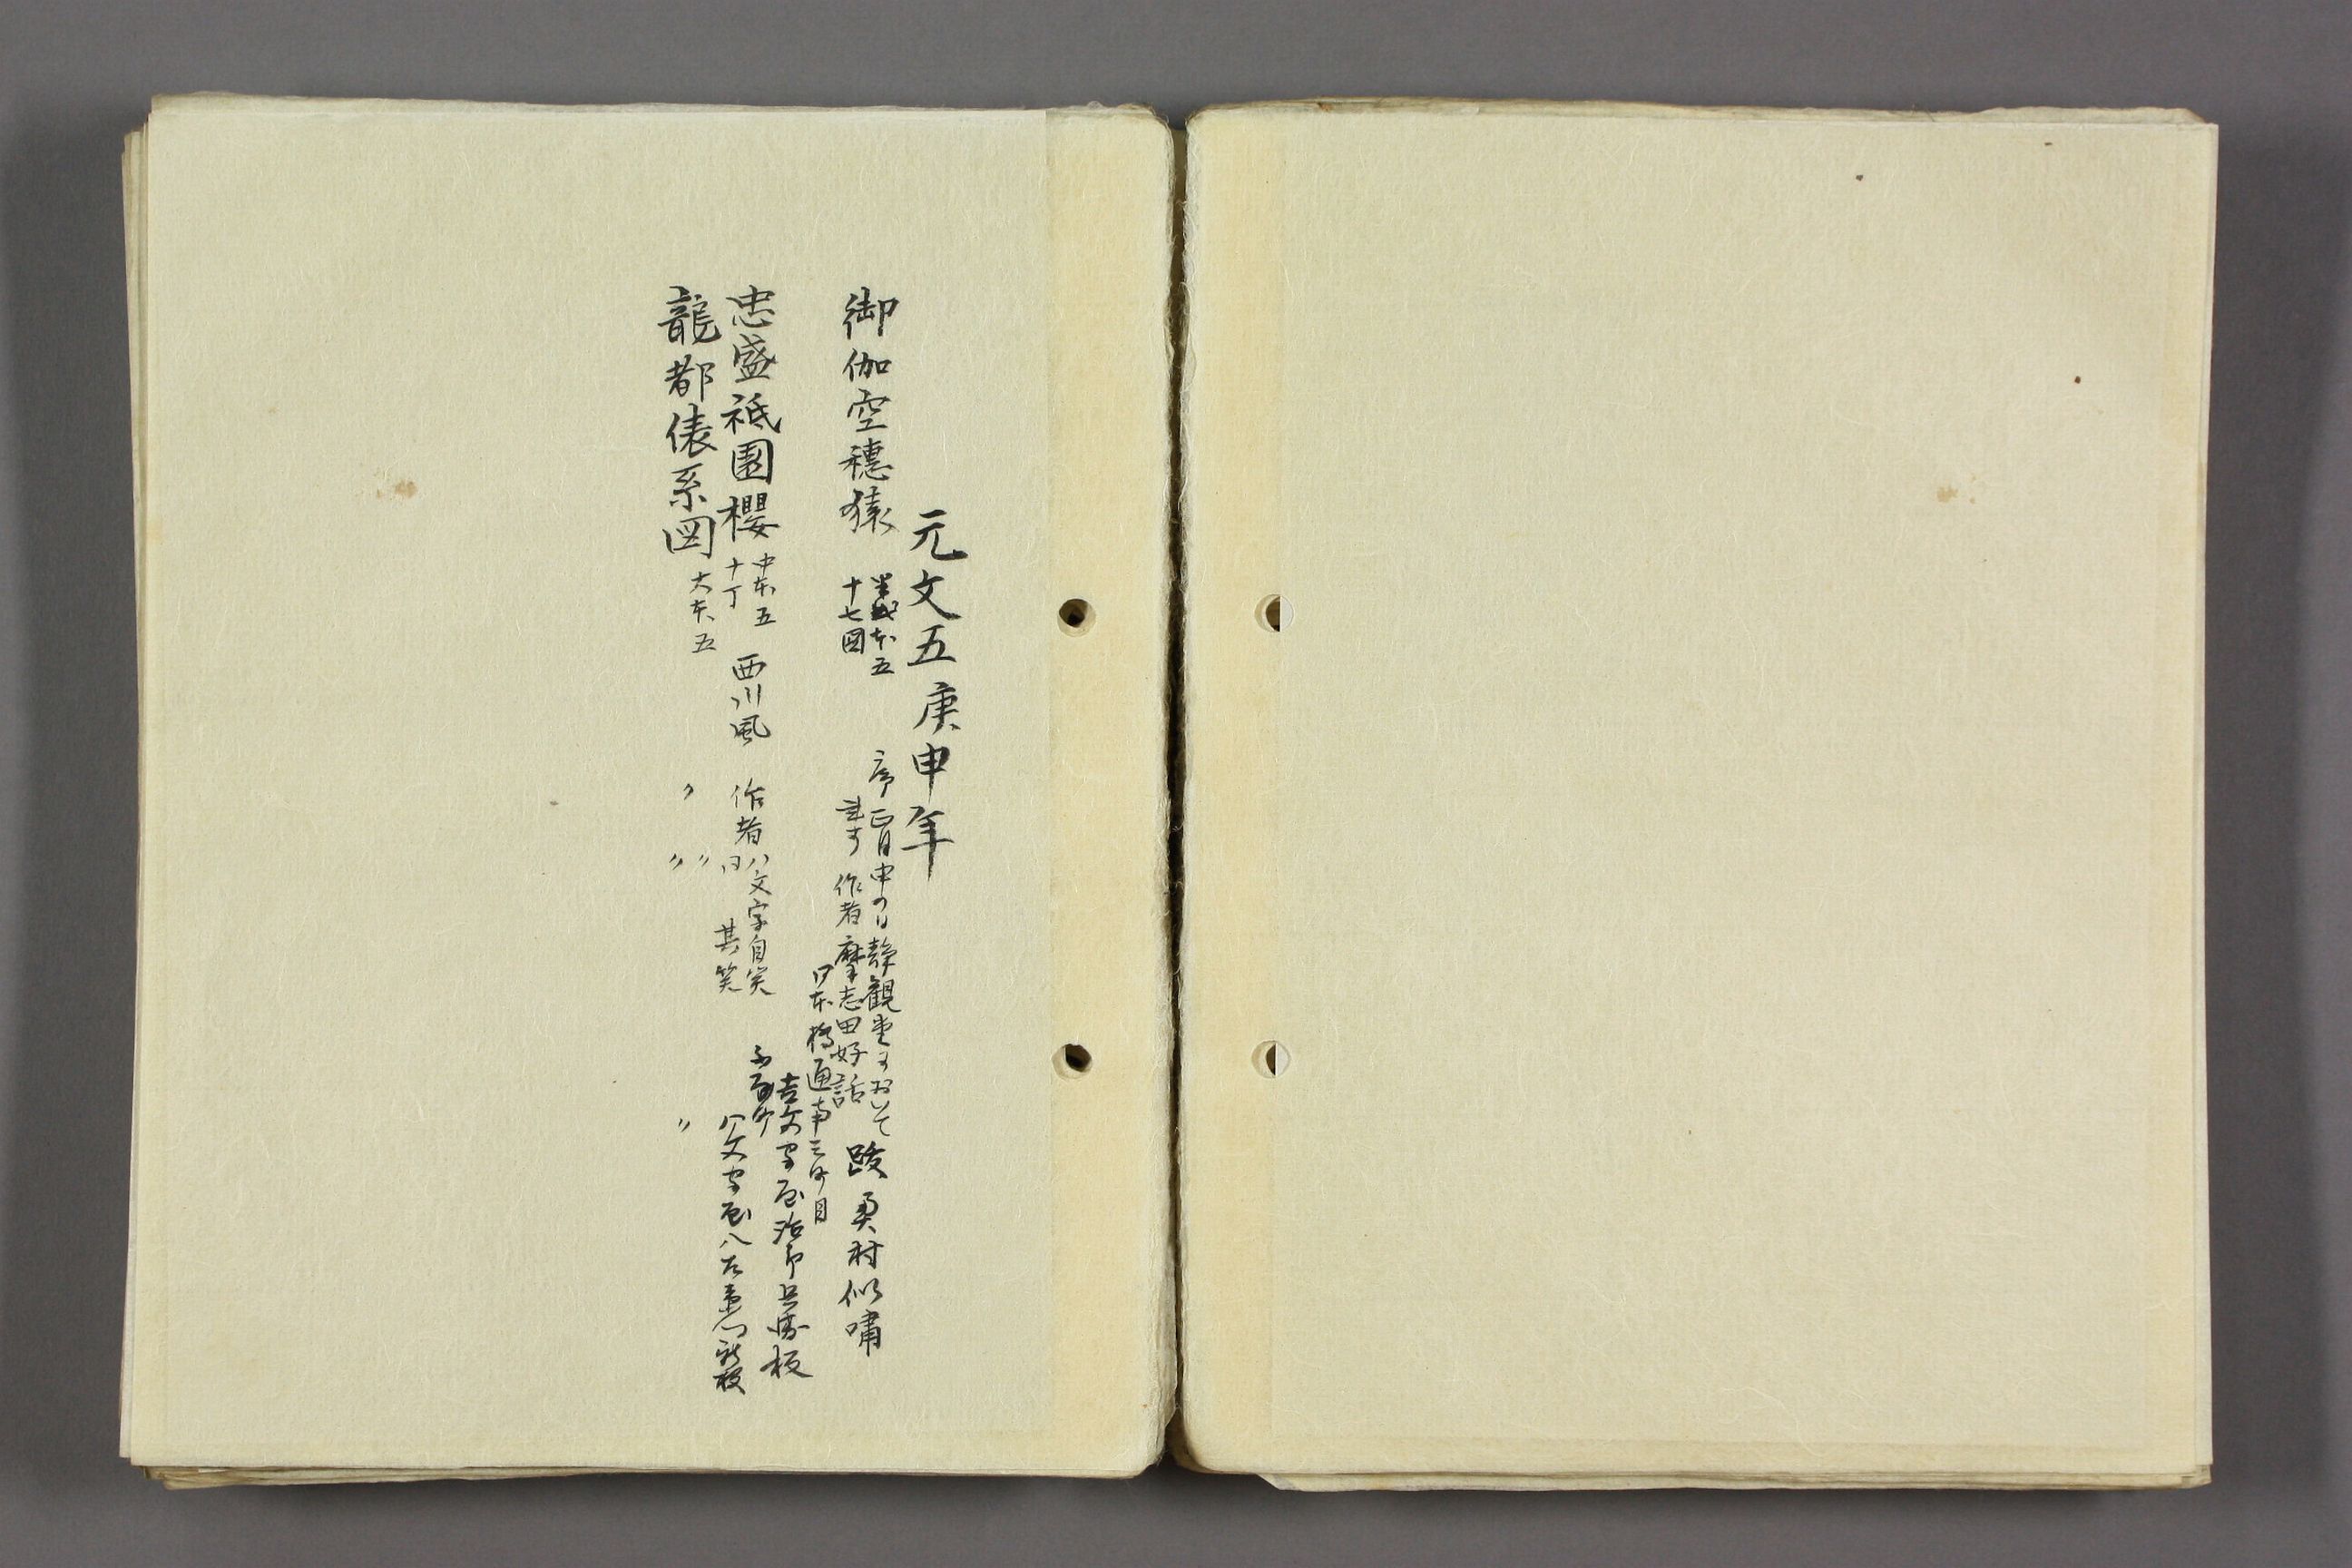 元文五庚申年
御伽空穂猿
半紙本五
十七図
序 正月申の日静観堂におゐて
作者 摩志田好話
跋 奥村似嘯
日本橋通南三町目
吉文字屋治郎兵衛板
忠盛祇園櫻
中本五
十丁
西川風
作者 八文字自笑
同 其笑
八文字屋八左衛門新板
龍都俵系図
大本五
〃
〃 〃
〃